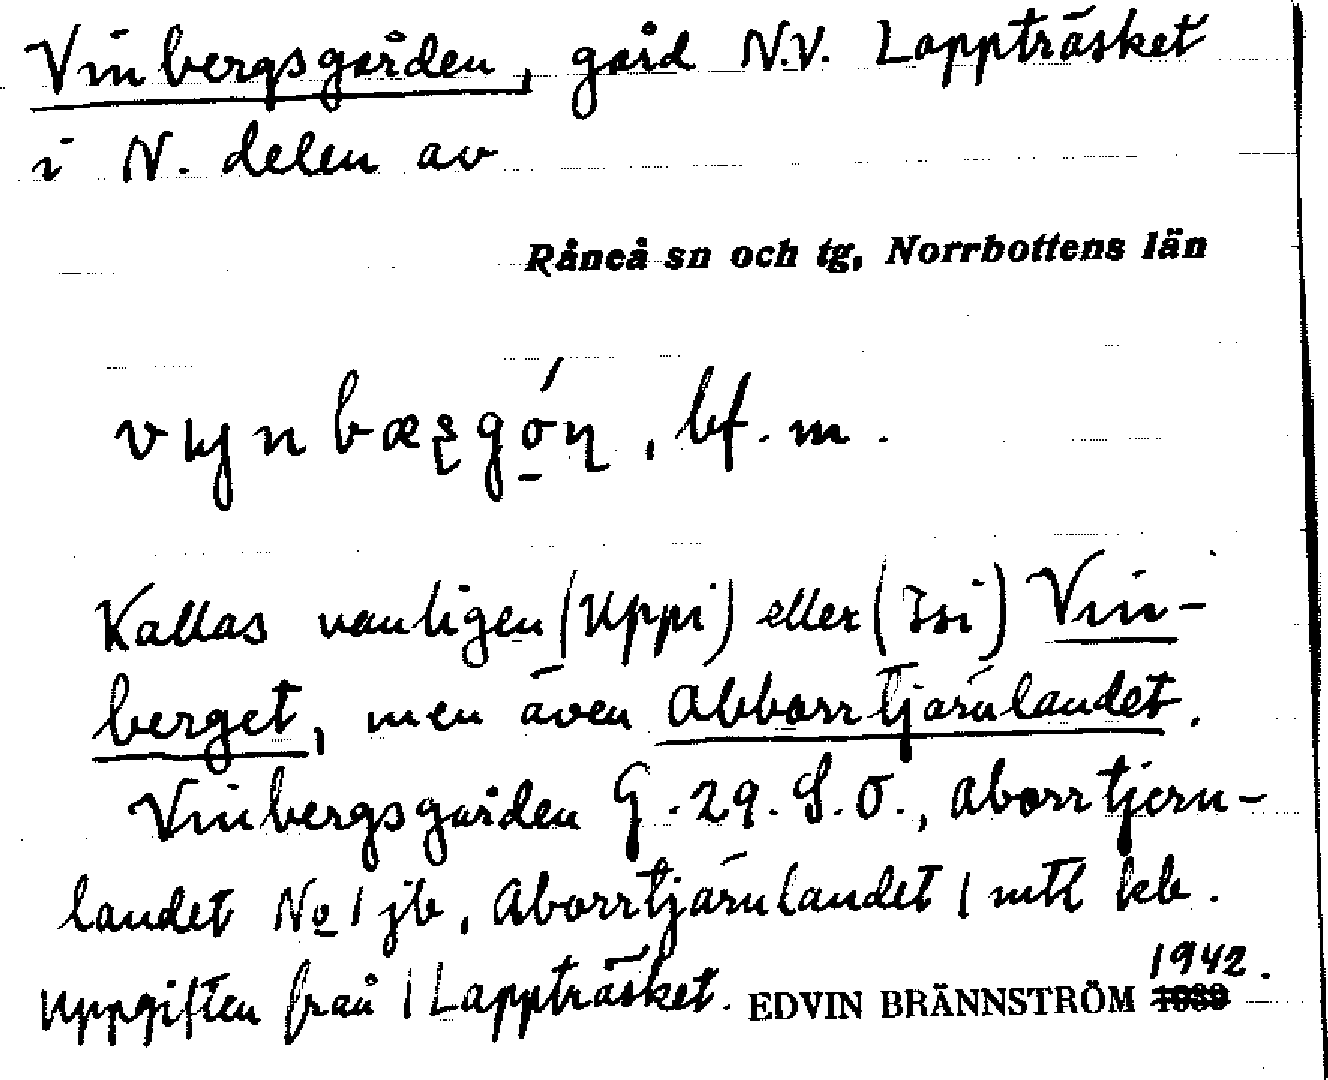 Vinbergsgården, gård N.V. Lappträsket
i N. delen av
Råneå sn och tg, Norrbottens län
bf. m.
Kallas vanligen (Uppi) eller (Isi) Vin-
berget, men även Abborrtjärnlandet.
Vinbergsgården G. 29. S.O., Aborrtjern-
landet No 1 jb, Aborrtjärnlandet 1 mtl kb.
Uppgiften från 1 Lappträsket. EDVIN BRÄNNSTRÖM 1942.